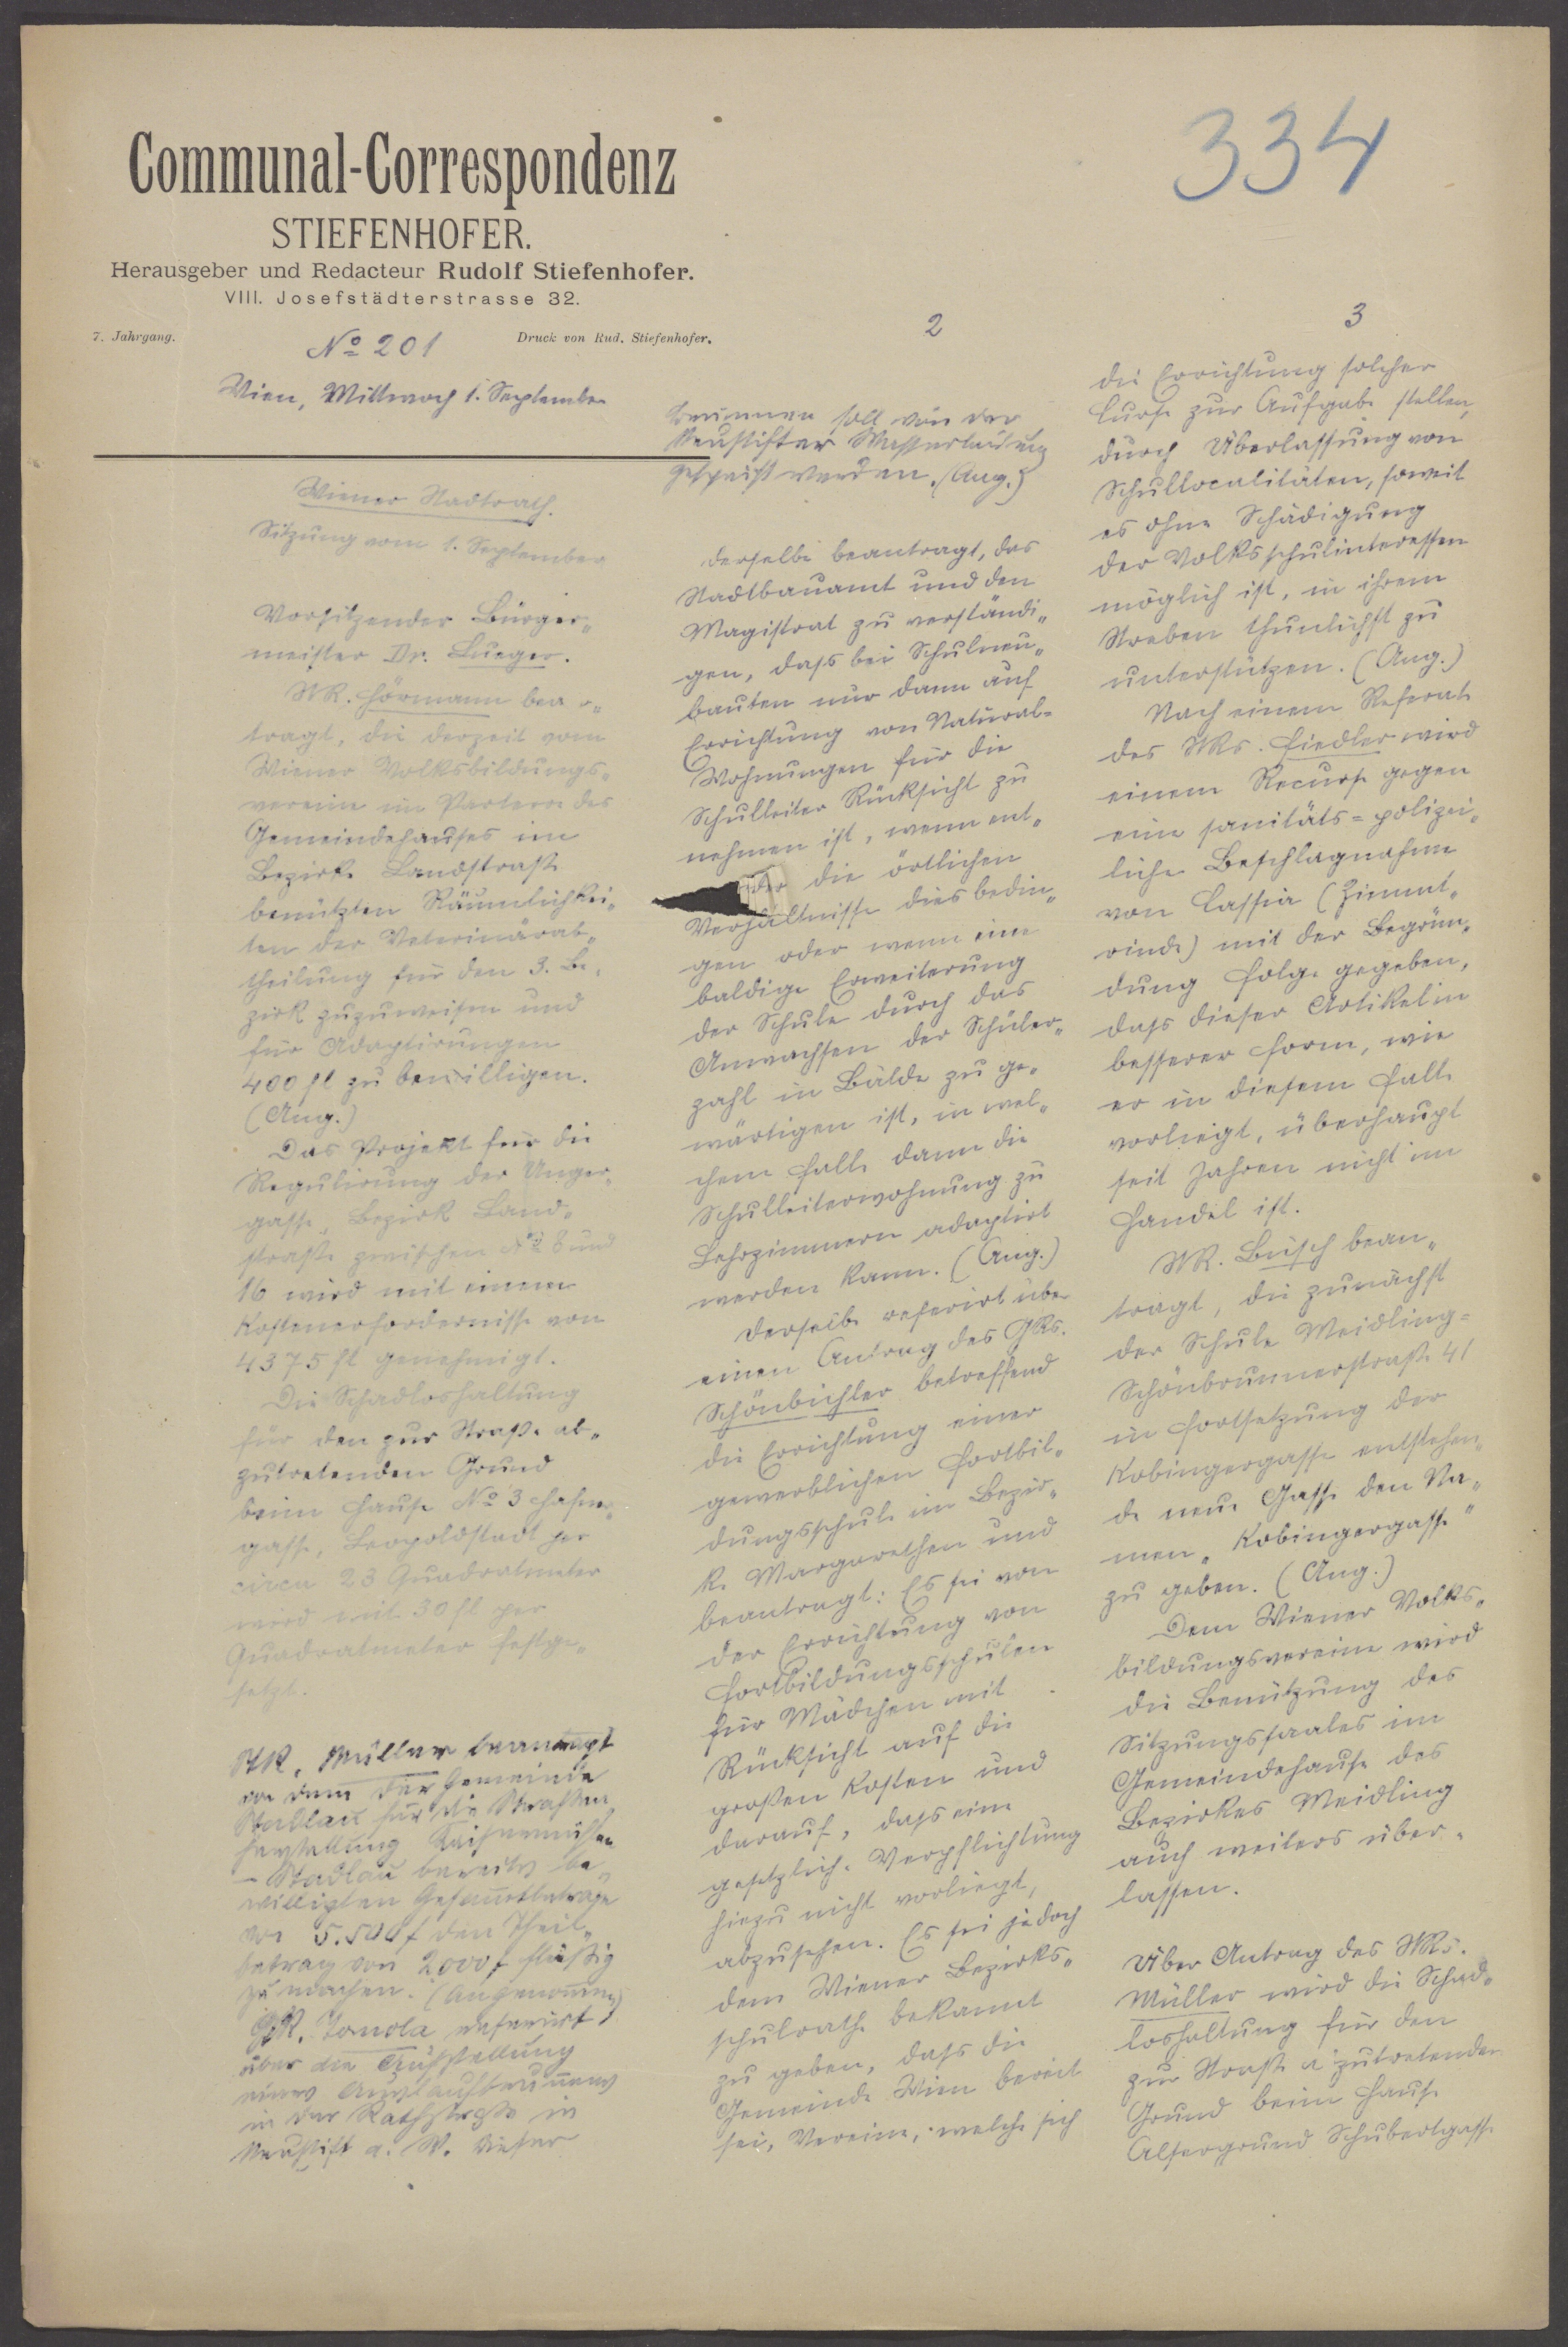 334
Communal-Correspondenz
STIEFENHOFER.
Herausgeber und Redacteur Rudolf Stiefenhofer.
VIII. Josefstädterstrasse 32.
7. Jahrgang.
Druck von Rud. Stiefenhofer.
No 201
Wien, Mittwoch 1. September
Wiener Stadtrath.
Sitzung vom 1. September
Vorsitzender Bürger„
meister Dr. Lueger.
StR. Hörmann bean„
tragt, die derzeit vom
Wiener Volksbildungs„
vereine im Parterre des
Gemeindehauses im
Bezirk Landstraße
benützten Räumlichkei„
ten der Veterinärab„
theilung für den 3. Be„
zirk zuzuweisen und
für Adaptirungen
400 fl zu bewilligen.
(Ang.)
Das Projekt für die
Regulirung der Unger„
gasse, Bezirk Land„
straße zwischen No 8 und
16 wird mit einem
Kostenerfordernisse von
4375 fl genehmigt.
Die Schadloshaltung
für den zur Straße ab„
zutretenden Grund
beim Hause No 3
gasse, Leopoldstadt per
circa 23 Quadratmeter
wird mit 30 fl per
Quadratmeter festge„
setzt.
StR. Müller beantragt
von dem der Gemeinde
Stadlau für die Straßen
herstellung Kaisermühlen
- Stadlau bereits be„
willigten Gesammtbetrage
von 5.500 f den Theil„
betrag von 2000 f flüßig
zu machen. (Angenommen)
StR. Tomola referirt
über die Aufstellung
eines Auslaufbrunnens
in der Rathstraße in
Neustift a. W. Dieser
2
Brunnen soll von der
Neustifter Wasserleitung
gespeist werden. (Ang.)
Derselbe beantragt, das
Stadtbauamt und den
Magistrat zu verständi„
gen, dass bei Schulneu„
bauten nur dann auf
Errichtung von Natural=
Wohnungen für die
Schulleiter Rücksicht zu
nehmen ist, wenn ent„
weder die örtlichen
Verhältnisse dies bedin„
gen oder wenn eine
baldige Erweiterung
der Schule durch das
Anwachsen der Schüler„
zahl in Bälde zu ge„
wärtigen ist, in wel„
chem Falle dann die
Schulleiterwohnung zu
Lehrzimmern adaptirt
werden kann. (Ang.)
Derselbe referirt über
einen Antrag des GRs.
Schönbichler betreffend
die Errichtung einer
gewerblichen Fortbil„
dungsschule im Bezir„
ke Margarethen und
beantragt: Es sei von
der Errichtung von
Fortbildungsschulen
für Mädchen mit
Rücksicht auf die
großen Kosten und
darauf, dass eine
gesetzliche Verpflichtung
hiezu nicht vorliegt,
abzusehen. Es sei jedoch
dem Wiener Bezirks„
schulrathe bekannt
zu geben, dass die
Gemeinde Wien bereit
sei, Vereine, welche sich
3
die Errichtung solcher
Curse zur Aufgabe stellen,
durch Überlassung von
Schullocalitäten, soweit
es ohne Schädigung
der Volksschulinteressen
möglich ist, in ihrem
Streben thunlichst zu
unterstützen. (Ang.)
Nach einem Referate
des StRs. Fiedler wird
einem Recurse gegen
eine sanitäts=polizei„
liche Beschlagnahme
von Cassia (Zimmt„
rinde) mit der Begrün„
dung Folge gegeben,
dass dieser Artikel in
besserer Form, wie
er in diesem Falle
vorliegt, überhaupt
seit Jahren nicht im
Handel ist.
StR. Büsch bean„
tragt, die zunächst
der Schule Meidling=
Schönbrunnerstraße 41
in Fortsetzung der
Kobingergasse entstehen„
de neue Gasse den Na„
men „Kobingergasse"
zu geben. (Ang.)
Dem Wiener Volks„
bildungsvereine wird
die Benützung des
Sitzungssaales im
Gemeindehause des
Bezirkes Meidling
auch weiters über„
lassen.
Über Antrag des StRs.
Müller wird die Schad„
loshaltung für den
zur Straße abzutretenden
Grund beim Hause
Alsergrund Schubertgasse